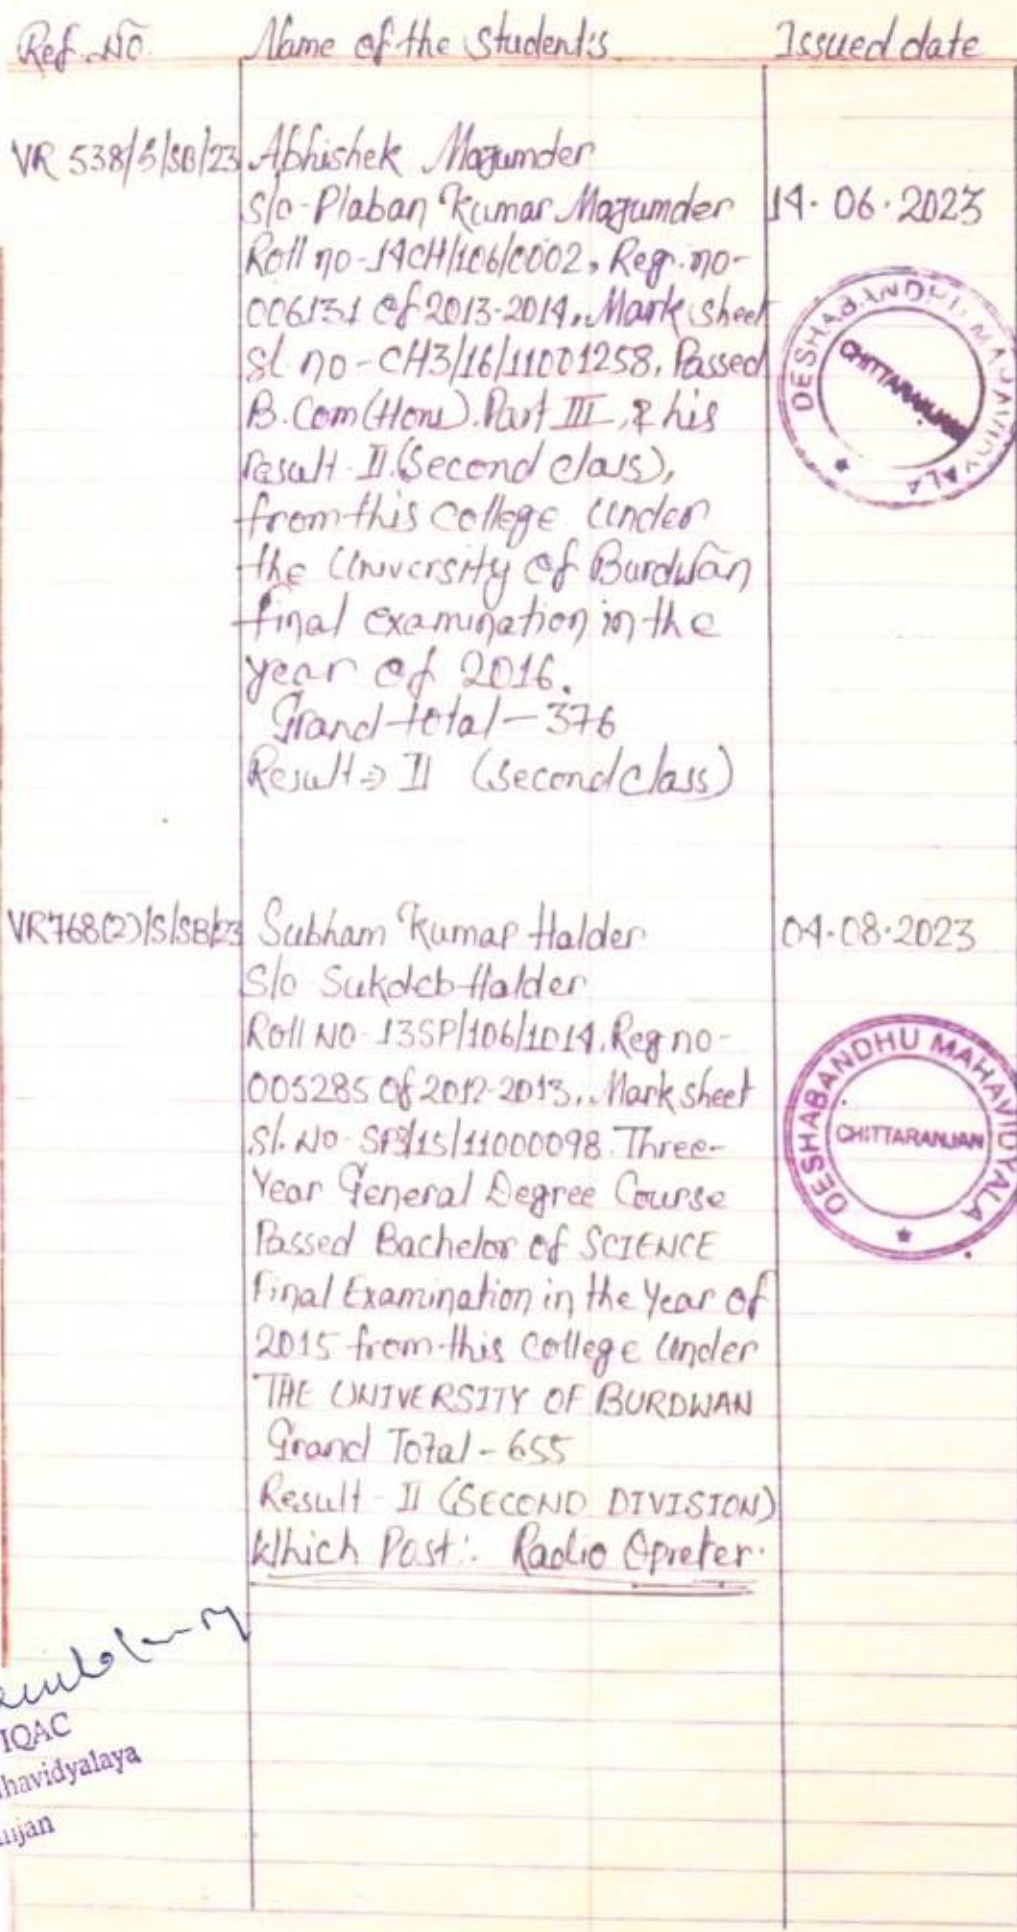 Ref. No. Name of the Student's Issued date
VR 538/S/SB/23 Abhishek Mazumder
S/o - Plaban Kumar Mazumder 14.06.2023
Roll no - 14CH/106/0002, Reg. no -
006131 of 2013-2014, Mark sheet
Sl. no - CH3/16/11001258, Passed
B.Com (Hons). Part III, & his
result - II (Second class),
from this college under
the University of Burdwan
final examination in the
year of 2016.
Grand total - 376
Result => II (second class)
DESHABANDHU MAHAVIDYALA
CHITTARANJAN
VR768(2)/S/SB/23 Subham Kumar Halder 04.08.2023
S/o Sukdeb Halder
Roll NO - 13SP/106/1014, Reg no -
005285 of 2012-2013, Mark sheet
Sl. NO - SP3/15/11000098. Three-
Year General Degree Course
Passed Bachelor of SCIENCE
Final Examination in the Year of
2015 from this College Under
THE UNIVERSITY OF BURDWAN
Grand Total - 655
Result - II (SECOND DIVISION)
Which Post: Radio Opreter.
DESHABANDHU MAHAVIDYALA
CHITTARANJAN
IQAC
havidyalaya
njan